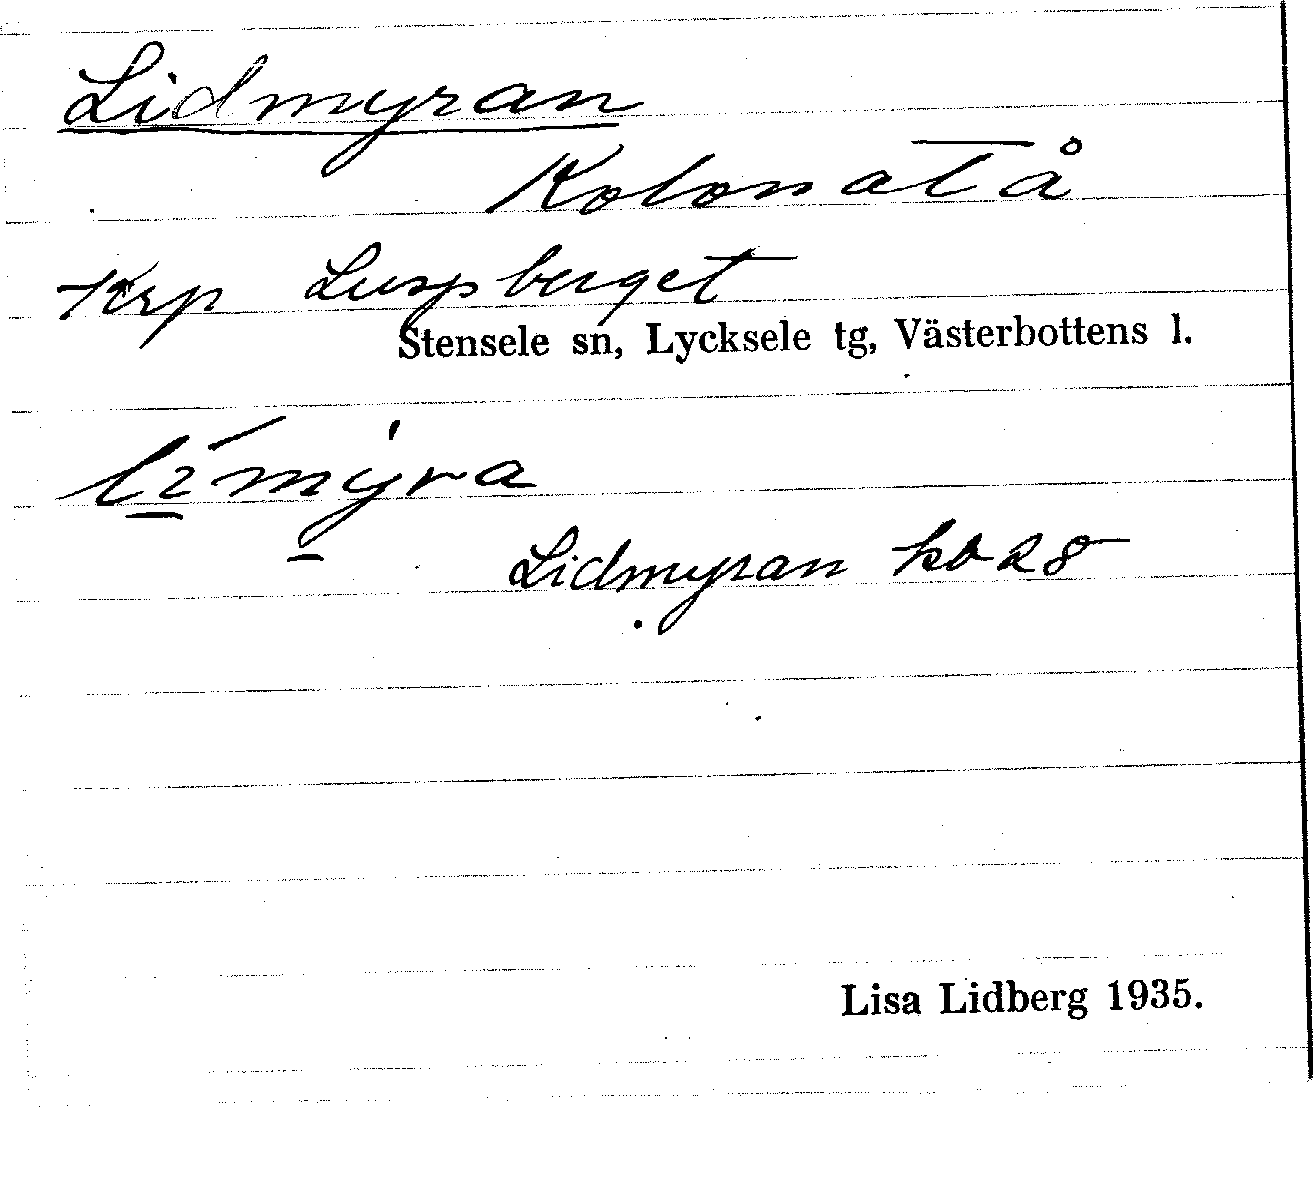 Lidmyran
Kolonat å
Krp Luspberget
Stensele sn, Lycksele tg, Västerbottens l.
límýra
Lidmyran kb 28
Lisa Lidberg 1935.